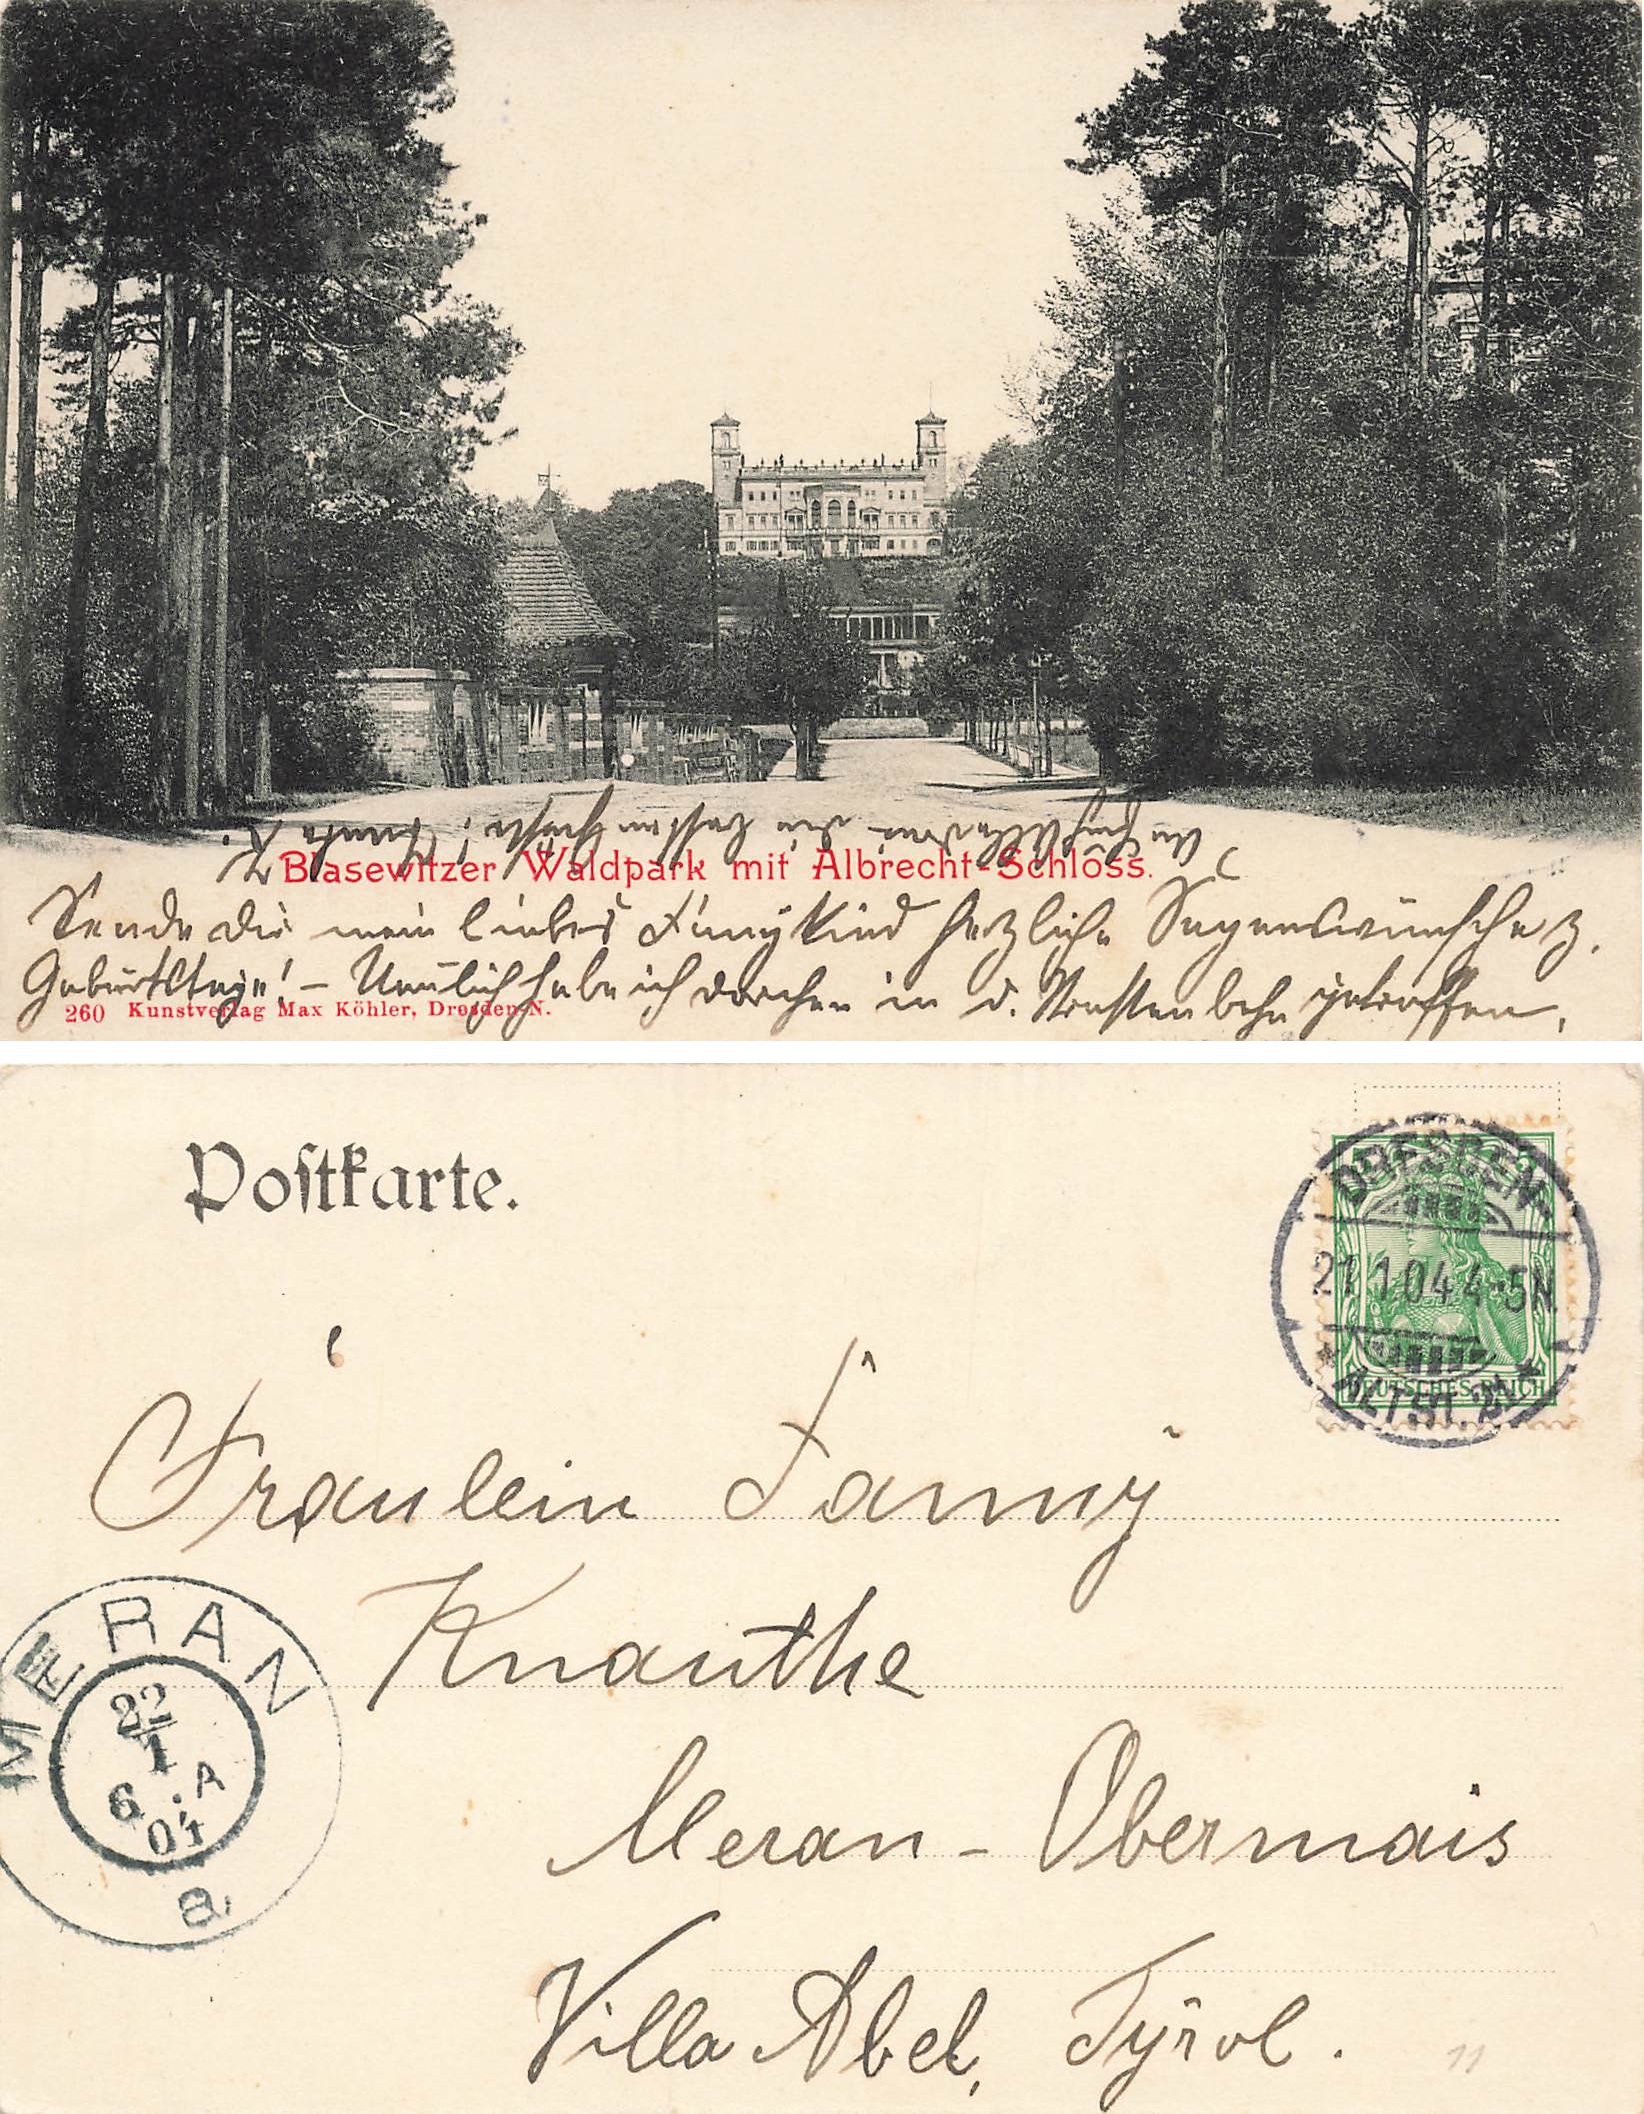 Blasewitzer Waldpark mit Albrecht-Schloss.
Sende dir mein liebes Fannykind herzliche Segenswünsche z.
Geburtstage! – Neulich habe ich Dorchen in d. Strassenbahn getroffen,
260 Kunstverlag Max Köhler, Dresden-N.
Postkarte.
DRESDEN
21.1.04.4-5N.
* ALTST. 24 *
DEUTSCHES REICH
Fräulein Fanny
Knauthe
Meran - Obermais
Villa Abel, Tyrol.
MERAN
22
1
6.A
04
a
11